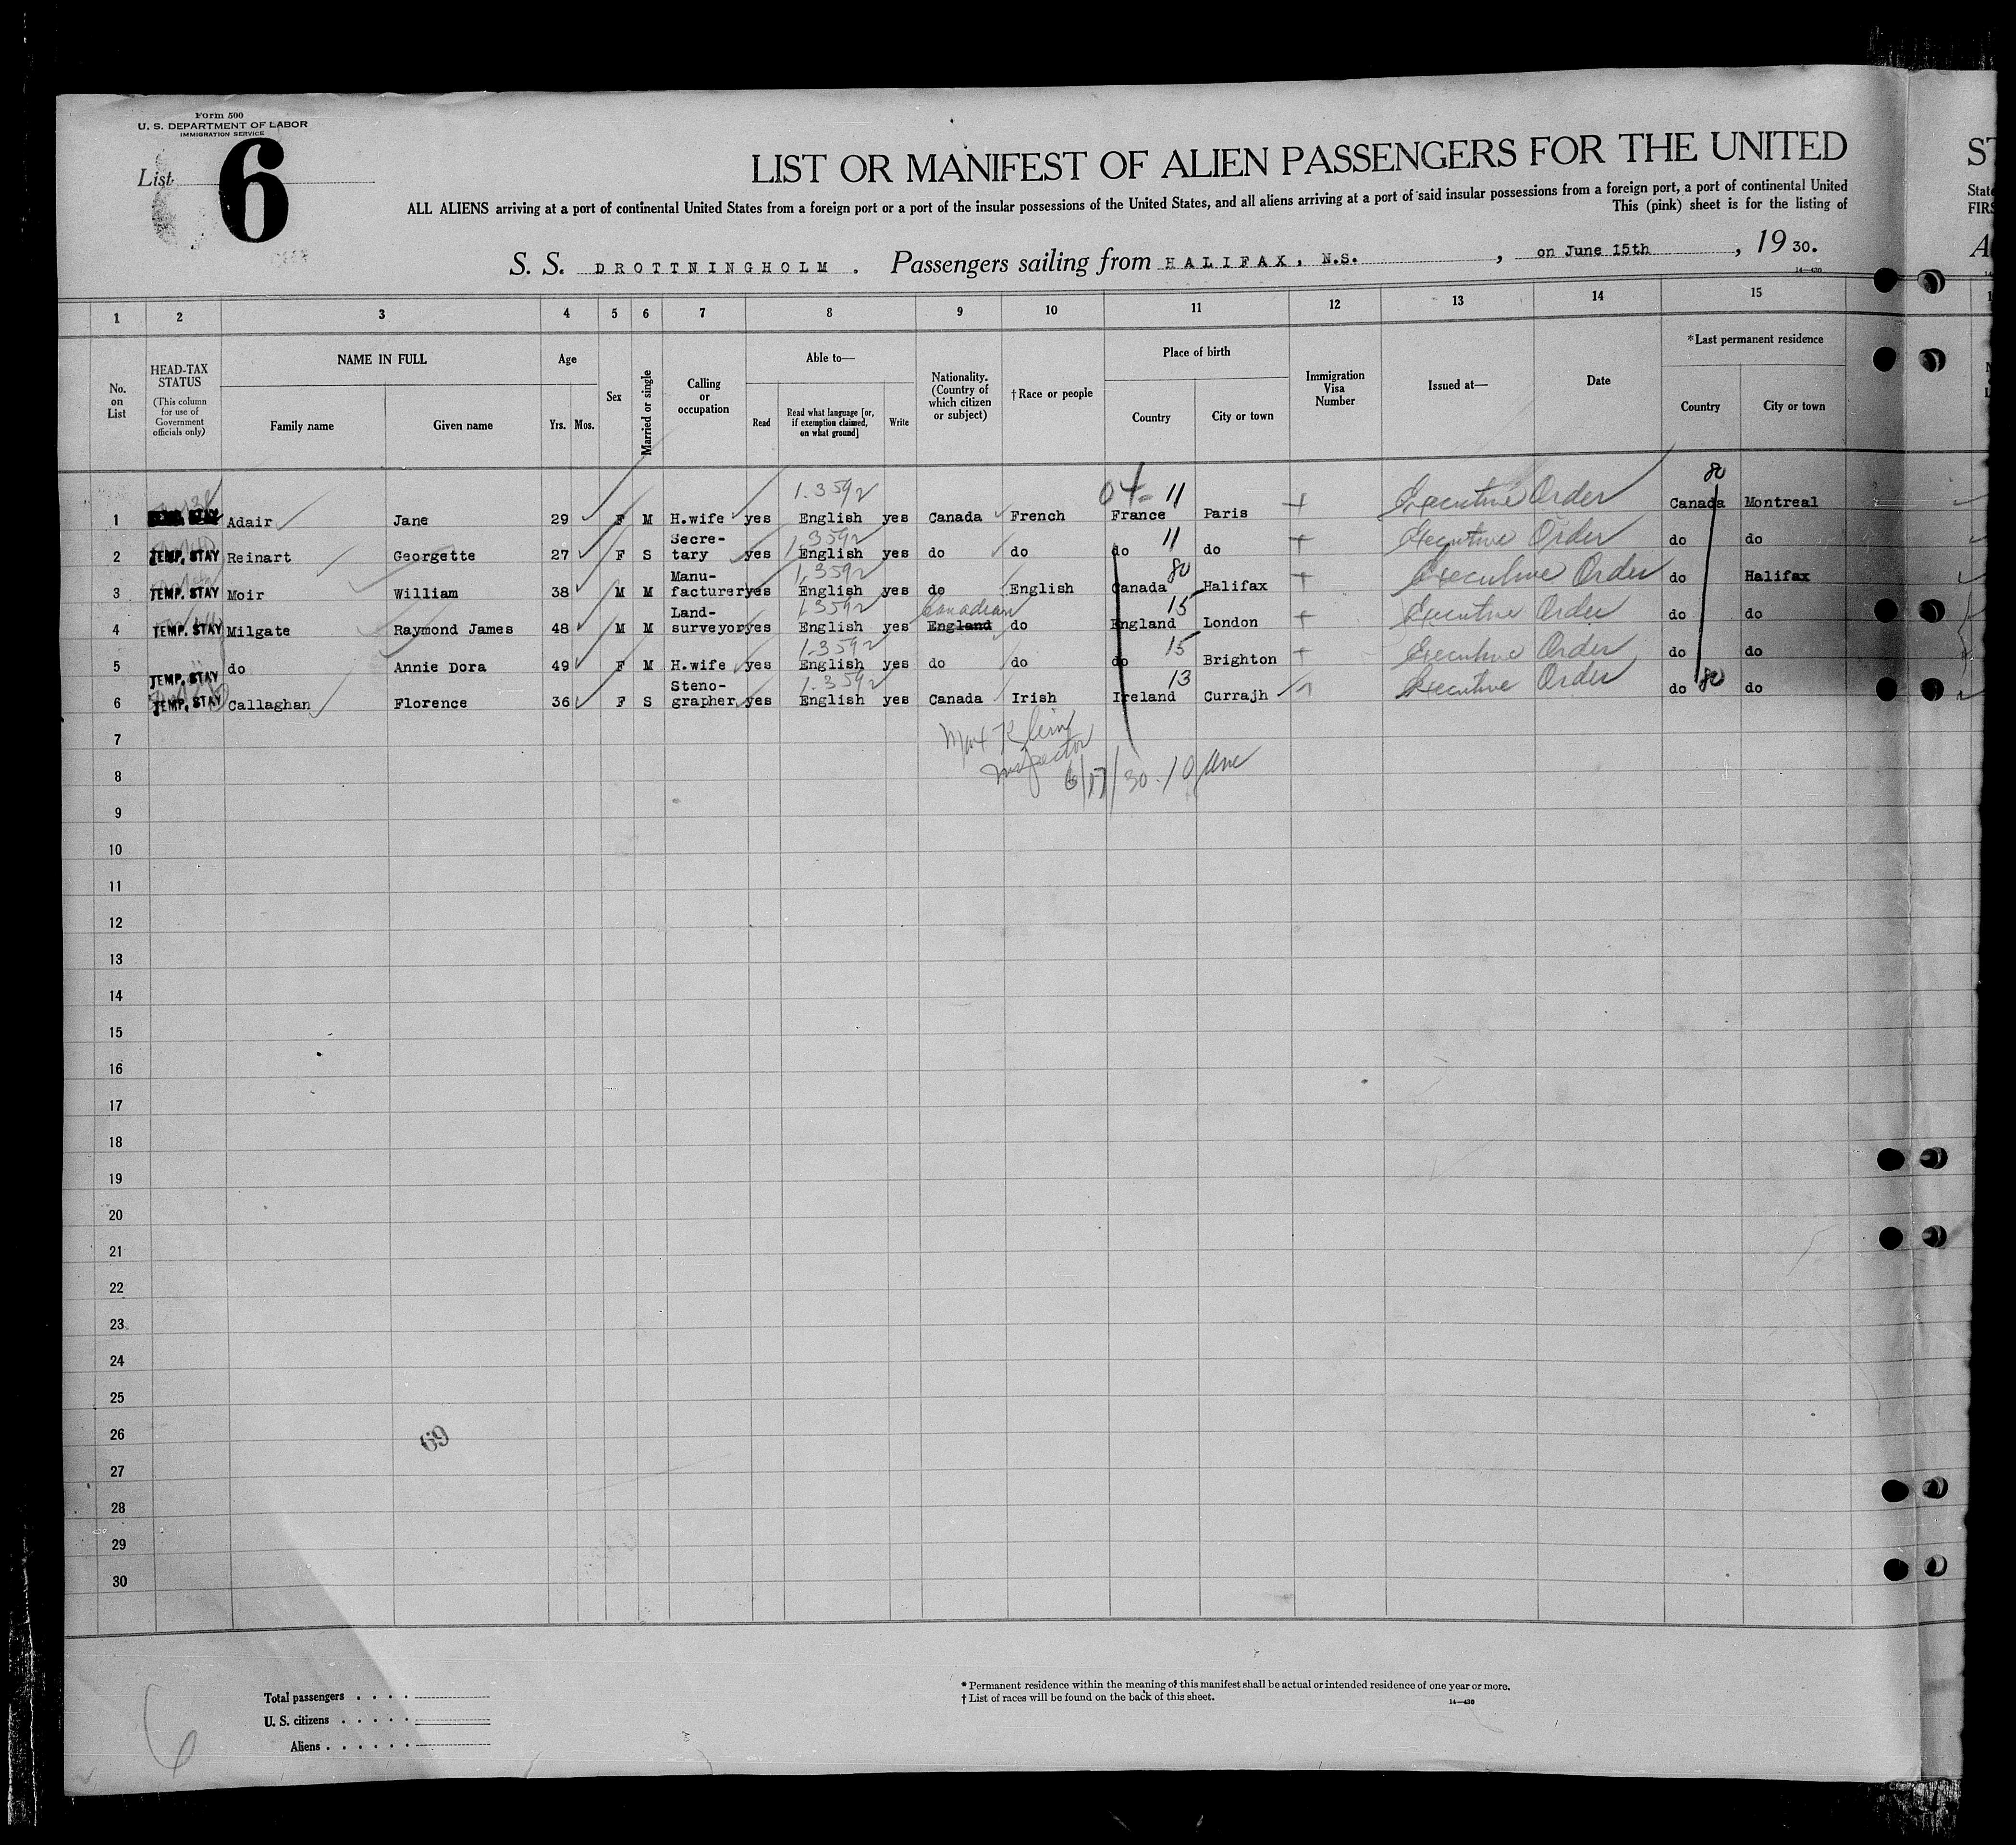 Form 500
U. S. DEPARTMENT OF LABOR
IMMIGRATION SERVICE
List 6
LIST OR MANIFEST OF ALIEN PASSENGERS FOR THE UNITED
ALL ALIENS arriving at a port of continental United States from a foreign port or a port of the insular possessions of the United States, and all aliens arriving at a port of said insular possessions from a foreign port, a port of continental United
This (pink) sheet is for the listing of
S. S. DROTTNINGHOLM . Passengers sailing from HALIFAX, N.S. , on June 15th , 19 30.
14—430
ST
State
FIRS
1 2 3 4 5 6 7 8 9 10 11 12 13 14 15
No. on List
HEAD-TAX STATUS
(This column for use of Government officials only)
NAME IN FULL
Family name Given name
Age
Yrs. Mos.
Sex
Married or single
Calling or occupation
Able to—
Read
Read what language [or, if exemption claimed, on what ground]
Write
Nationality. (Country of which citizen or subject)
† Race or people
Place of birth
Country City or town
Immigration Visa Number
Issued at—
Date
*Last permanent residence
Country City or town
1.3592 04- 11 80
1 TEMP. STAY Adair Jane 29 F M H.wife yes English yes Canada French France Paris Executive Order Canada Montreal
1.3592 11
2 TEMP. STAY Reinart Georgette 27 F S Secre-tary yes English yes do do do do Executive Order do do
1.3592 80
3 TEMP. STAY Moir William 38 M M Manu-facturer yes English yes do English Canada Halifax Executive Order do Halifax
1.3592 Canadian 15
4 TEMP. STAY Milgate Raymond James 48 M M Land-surveyor yes English yes England do England London Executive Order do do
1.3592 15
5 TEMP. STAY do Annie Dora 49 F M H.wife yes English yes do do do Brighton Executive Order do do
1.3592 13 80
6 TEMP. STAY Callaghan Florence 36 F S Steno-grapher yes English yes Canada Irish Ireland Currajh Executive Order do do
7
Max Klein
Inspector
8
6/17/30
9
10
11
12
13
14
15
16
17
18
19
20
21
22
23
24
25
26
69
27
28
29
30
Total passengers . . . .
U. S. citizens . . . . .
Aliens . . . . . .
6
* Permanent residence within the meaning of this manifest shall be actual or intended residence of one year or more.
† List of races will be found on the back of this sheet.
14—430